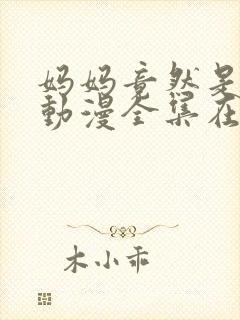 妈妈竟然是
動漫全集在
木小乖